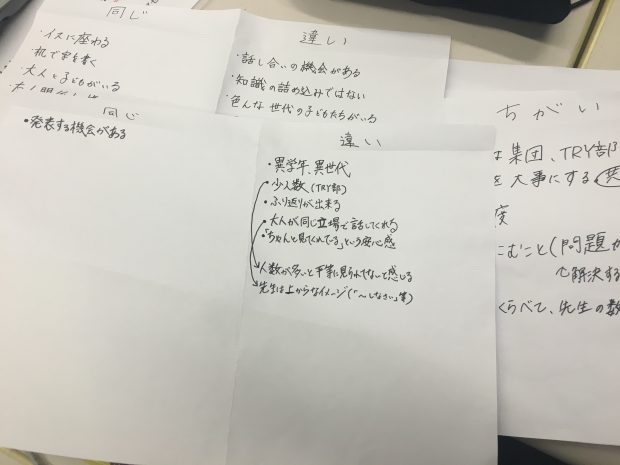 同じ
・イスに座わる
・机で字を書く
・大人と子どもがいる
違い
・話し合いの機会がある
・知識の詰め込みではない
・色んな世代の子どもたちがいる
同じ
・発表する機会がある
違い
・異学年、異世代
・少人数(TRY部)
・ふり返りが出来る
・大人が同じ立場で話してくれる
・「ちゃんと見てくれている」という安心感
人数が多いと平等に見られてないと感じる
先生は上からなイメージ(「〜しなさい」等)
ちがい
は集団、TRY部
を大事にする
度
こむこと(問題
解決する
くらべて、先生の数